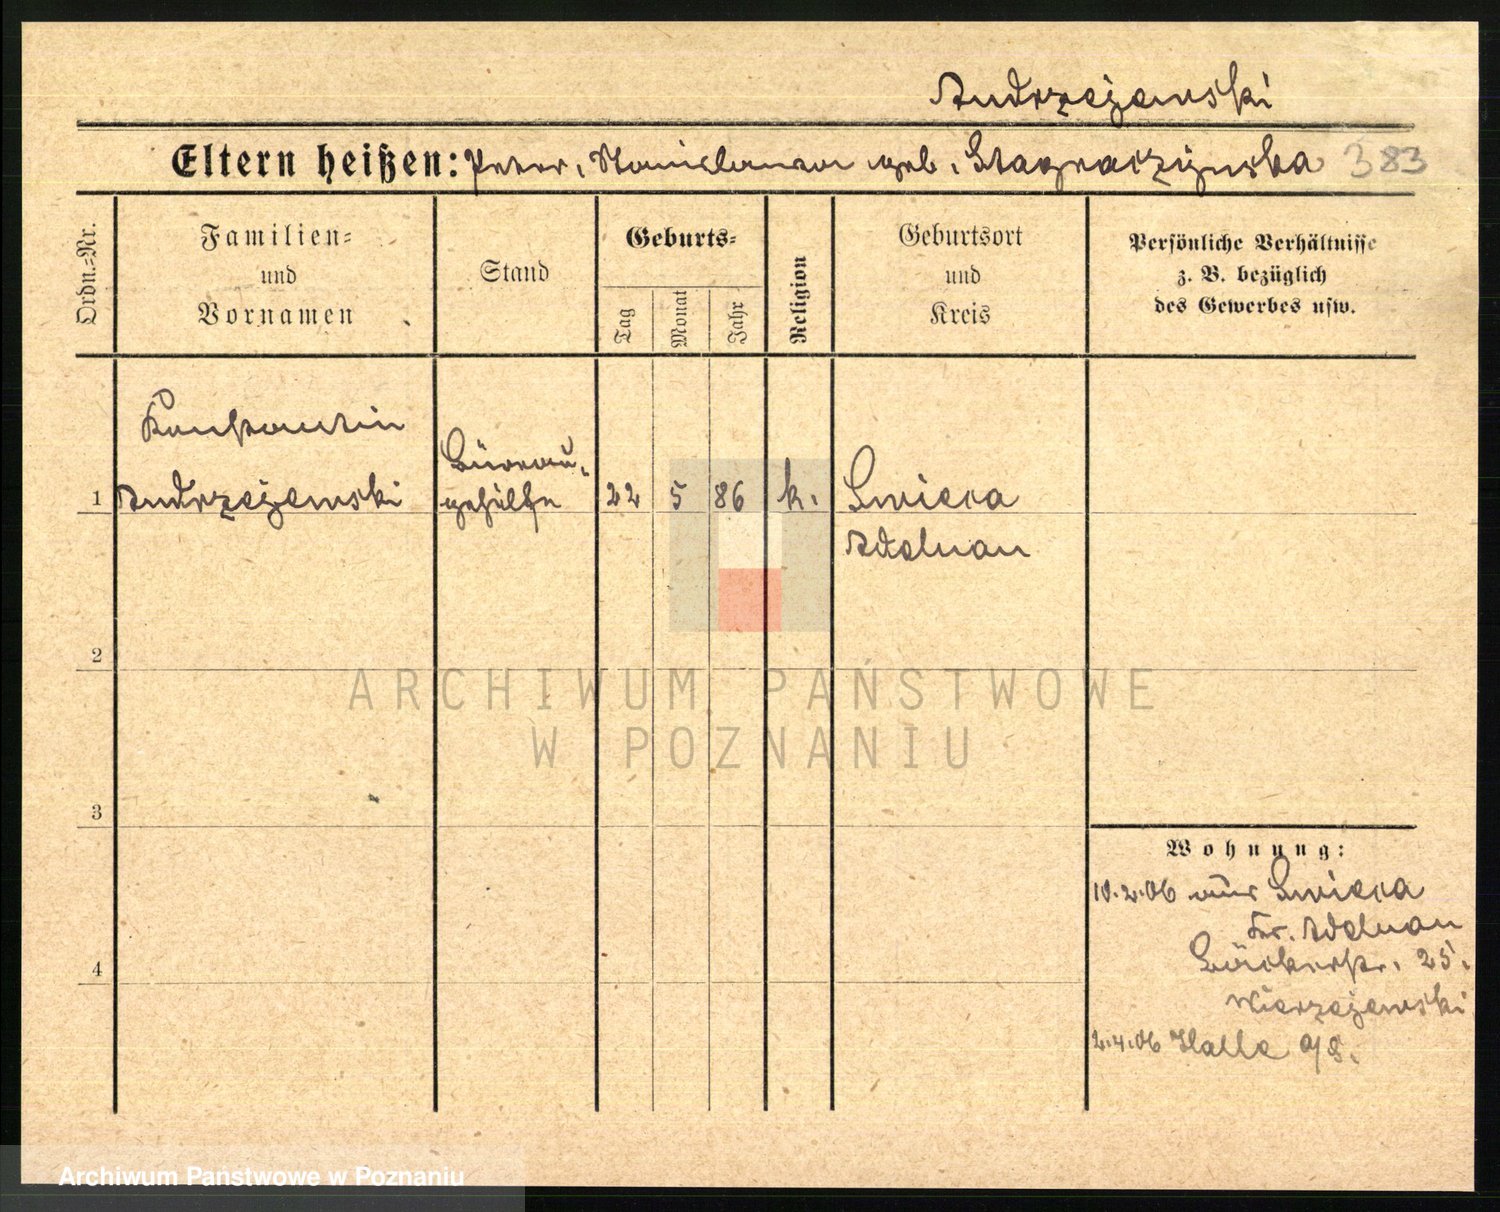 Andrzejewski
Eltern heißen: Peter, Stanislawa geb. 383
Ordn.=Nr.
Familien=
und
Vornamen
Stand
Geburts=
Tag
Monat
Jahr
Religion
Geburtsort
und
Kreis
Persönliche Verhältnisse
z. B. bezüglich
des Gewerbes usw.
Konstantin
Büreau-
1 Andrzejewski gehilfe 22 5 86 k. Swieca
Adelnau
2
ARCHIWUM PAŃSTWOWE
W POZNANIU
3
Wohnung:
10.2.06 aus Swieca
Kr. Adelnau
Bäckerstr. 25.
4
Wierzejewski
2.4.06 Halle a/S.
Archiwum Państwowe w Poznaniu